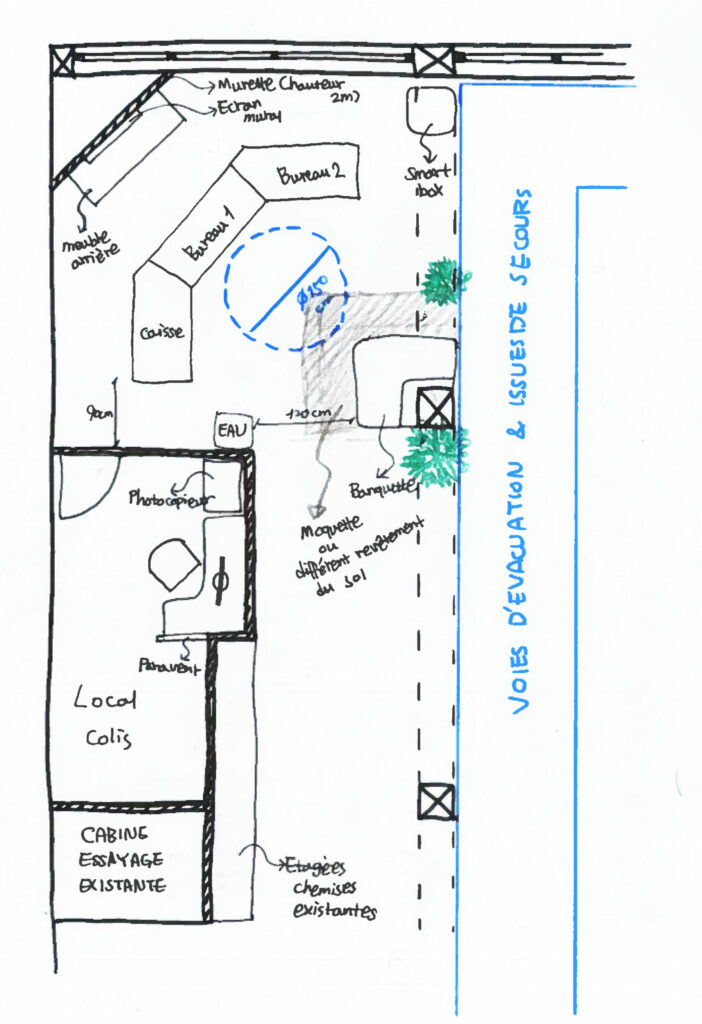 Murette Chauteur
2m)
Ecran
mural
Smart
ibox
Bureau 2
Bureau 1
meuble
arrière
Caisse
Ø150
cm
90cm
EAU
120cm
Photocopieur
Banquette
Moquette
ou
différent revêtement
du sol
Paravent
Local
Colis
CABINE
ESSAYAGE
EXISTANTE
Etagées
chemises
existantes
VOIES D'EVACUATION & ISSUES DE SECOURS